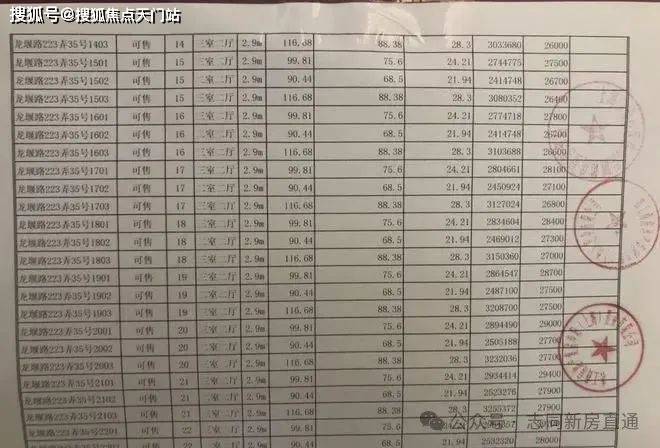 搜狐号@搜狐焦点天门站
龙堰路223弄35号1403 可售 14 三室二厅 2.9m 116.68 88.38 28.3 3033680 26000
龙堰路223弄35号1501 可售 15 三室二厅 2.9m 99.81 75.6 24.21 2744775 27500
龙堰路223弄35号1502 可售 15 二室二厅 2.9m 90.44 68.5 21.94 2414748 26700
龙堰路223弄35号1503 可售 15 三室二厅 2.9m 116.68 88.38 28.3 3080352 26400
龙堰路223弄35号1601 可售 16 三室二厅 2.9m 99.81 75.6 24.21 2774718 27800
龙堰路223弄35号1602 可售 16 二室二厅 2.9m 90.44 68.5 21.94 2414748 26700
龙堰路223弄35号1603 可售 16 三室二厅 2.9m 116.68 88.38 28.3 3103688 26600
龙堰路223弄35号1701 可售 17 三室二厅 2.9m 99.81 75.6 24.21 2804661 28100
龙堰路223弄35号1702 可售 17 二室二厅 2.9m 90.44 68.5 21.94 2450924 27100
龙堰路223弄35号1703 可售 17 三室二厅 2.9m 116.68 88.38 28.3 3127024 26800
龙堰路223弄35号1801 可售 18 三室二厅 2.9m 99.81 75.6 24.21 2834604 28400
龙堰路223弄35号1802 可售 18 二室二厅 2.9m 90.44 68.5 21.94 2469012 27300
龙堰路223弄35号1803 可售 18 三室二厅 2.9m 116.68 88.38 28.3 3150360 27000
龙堰路223弄35号1901 可售 19 三室二厅 2.9m 99.81 75.6 24.21 2864547 28700
龙堰路223弄35号1902 可售 19 二室二厅 2.9m 90.44 68.5 21.94 2487100 27500
龙堰路223弄35号1903 可售 19 三室二厅 2.9m 116.68 88.38 28.3 3208700 27500
龙堰路223弄35号2001 可售 20 三室二厅 2.9m 99.81 75.6 24.21 2894490 29000
龙堰路223弄35号2002 可售 20 二室二厅 2.9m 90.44 68.5 21.94 2505188 27700
龙堰路223弄35号2003 可售 20 三室二厅 2.9m 116.68 88.38 28.3 3232036 27700
龙堰路223弄35号2101 可售 21 三室二厅 2.9m 99.81 75.6 24.21 2934414 29400
龙堰路223弄35号2102 可售 21 二室二厅 2.9m 90.44 68.5 21.94 2523276 27900
龙堰路223弄35号2103 可售 21 三室二厅 2.9m 116.68 88.38 28.3 3255372 27900
龙堰路223弄35号2201 可售 22 三室二厅 2.9m 99.81 75.6 24.21
可售 22 2.9m 90.44 68.5 21.94 2532320 28000
公众号 · 志同新房直通